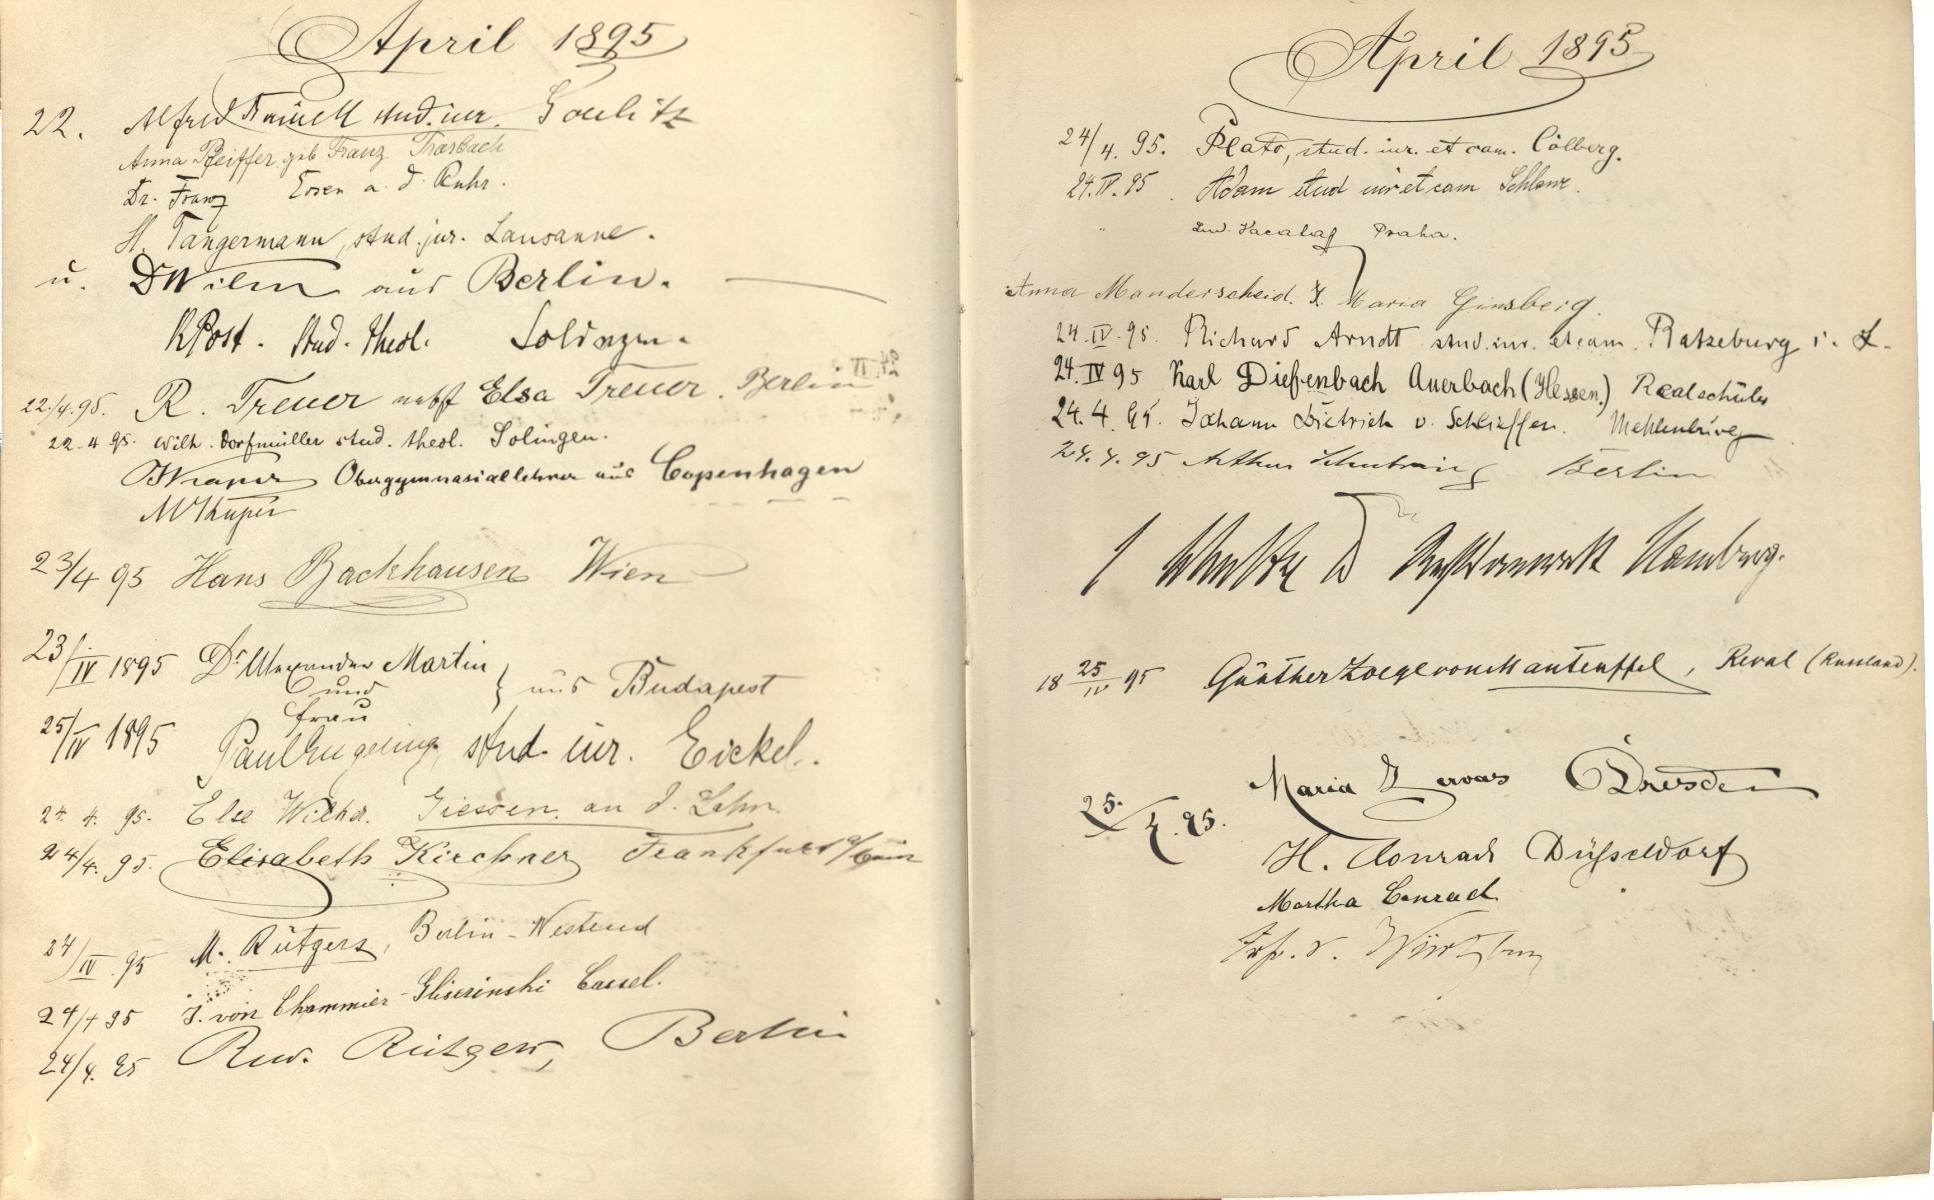 April 1895
22. Alfred stud. iur.
Anna Pfeiffer geb Franz Trarbach
Dr. Franz Essen a. d. Ruhr.
H. Tangermann, stud. jur. Lausanne.
u. DWilm aus Berlin.
RPost. stud. theol. Solingen.
22./4.95. R. Treuer nebst Elsa Treuer. Berlin
22.4.95. Wilh. Dorfmüller stud. theol. Solingen.
Obergymnasiallehrer aus Copenhagen
23/4 95 Hans Backhausen Wien
23/IV 1895 Dr Alexander Martin
und
frau
aus Budapest
25/IV 1895 Paul stud. iur. Eickel.
24. 4. 95. Else Giessen. an d. Lahn.
24/4. 95. Elisabeth Kirchner Frankfurt a/Main
24/IV. 95 M. Rütgers, Berlin-Westend
24/4 95 J. von Chammier-Gliscinski Cassel.
24/4. 95 Rud. Rütgers, Berlin
April 1895
24/4. 95. Plato, stud. iur. et cam. Cölberg.
24.IV.95. Adam stud iur et cam
" Praha.
Anna Manderscheid. Maria Ginsberg.
24.IV.95. Richard Arndt stud. iur. et cam. Ratzeburg i. L.
24.IV 95 Karl Diefenbach Auerbach (Hessen.) Realschüler
24.4.95. Johann Dietrich v. Schlieffen. Mecklenburg
24.4.95 Arthur Berlin
Rechtsanwalt Hamburg.
18 25/IV 95 Günther Zoege von Manteuffel, Reval (Russland).
25./4.95. Maria Dresden
H. Conrad Düsseldorf
Martha Conrad